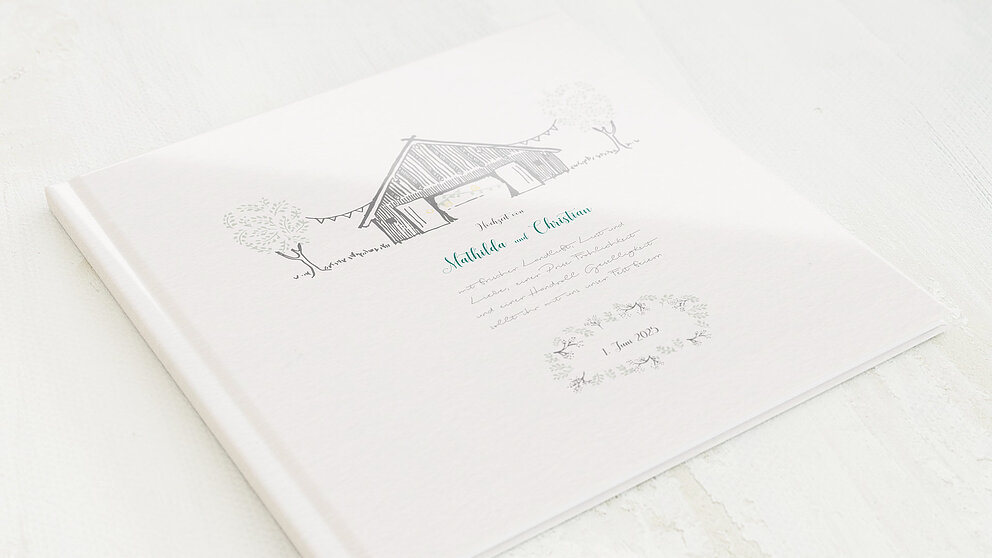 Hochzeit von
Mathilda und Christian
mit frischer Landluft, Lust und
Liebe, einer Prise Fröhlichkeit
und einer Handvoll Geselligkeit
sollt ihr mit uns unser Fest feiern
1. Juni 2025